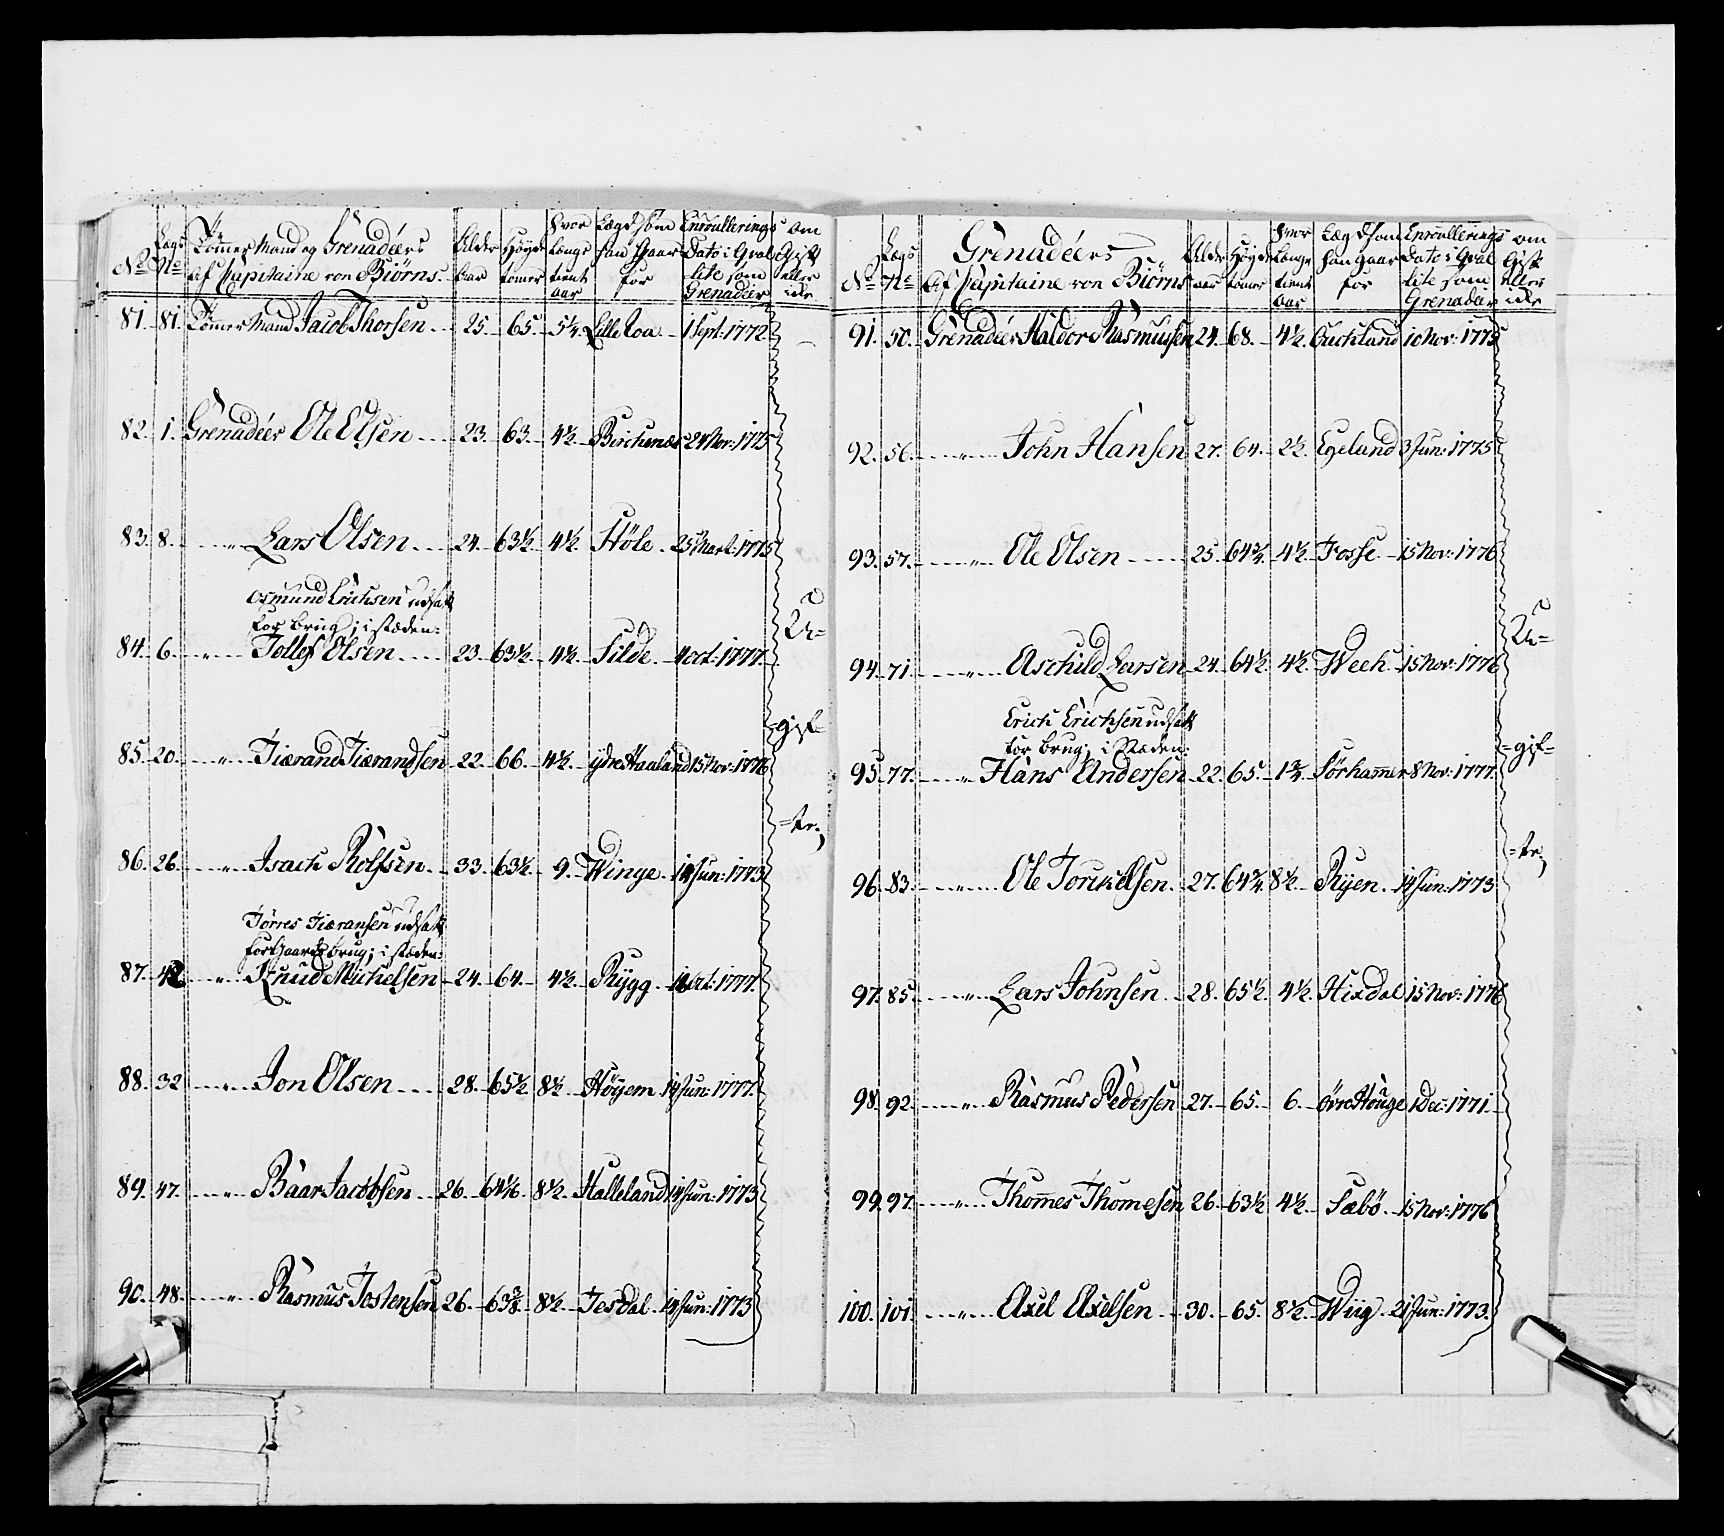 No Lægs No Tömer Mand og Grenadéers af Capitaine von Biörns. Alder aar Høyde tomer hvor længe tient aar Lægd som han staar for Enroullerings Dato i Qvalite som Grenadeer om Gift eller ikke
81. 81. Tömer Mand Jacob Thorsen 25. 65. 5½. Lille Roa 1 Sept. 1772.
82. 1. Grenadéer Ole Olsen 23. 63. 4½. Birchenæs 24 Nov: 1775
83. 8. " Lars Olsen 24. 63½. 4½. Höle 25 Mart: 1775
Osmund Erichsen udsatt
for brug; i stæden:
84. 6. " Tollef Olsen 23. 63½. 4½. Silde 4 oct: 1777. U=
85. 20. " Tiærand Tiærandsen 22. 66. 4½. ydre Haaland 15 Nov: 1776 =gif=
86. 26. " Isach Rolfsen 33. 63½. 9. Winge 14 Jun: 1773 =te;
Törres Tiæransen udsatt
for Gaards brug; i stæden:
87. 42 " Knud Michelsen 24. 64. 4½. Rygg oct: 1777.
88. 32 " Jon Olsen 28. 65½. 8½. Höyem 14 Jun: 1777.
89. 47. " Baar Jacobsen 26. 64 8½. Halleland 14 Jun: 1773
90. 48. " Rasmus Jostensen 26. 63⅜. 8½. Tesdal 14 Jun: 1773
No Lægs No Grenadéers af Capitaine von Biörns Alder aar Høyde tomer hvor Længe tient aar Lægd som han staar for Enroullerings Dato i Qvalite som Grenadeer om Gift eller ikke
91. 50. Grenadéer Haldor Rasmussen 24. 68. 4½. Buchland 10 Nov: 1775
92. 56. " John Hansen 27. 64. 2½. Egeland 3 Jun: 1775
93. 57. " Ole Olsen 25. 64¾. 4½. Fosse 15 Nov: 1776
94. 71. " Aschild Larsen 24. 64½. 4½. Week 15 Nov: 1776 U=
Erich Erichsen udsatt
for brug; i stæden:
95. 77. " Hans Andersen 22. 65. 1¾. Sörhamer 8 Nov: 1777. =gif=
96. 83. " Ole Torckelsen 27. 64¾. 8½. Ryen 14 Jun: 1773 =te;
97. 85. " Lars Johnsen 28. 65½. 4½. Hixdal 15 Nov: 1776
98. 92. " Rasmus Pedersen 27. 65. 6. övre Houge 1 Dec: 1771.
99. 97. " Thomes Thomesen 26. 63½ 4½. Sæbö 15 Nov: 1776
100. 101. " Axel Axelsen 30. 65. 8½. Wiig 21 Jun: 1773.